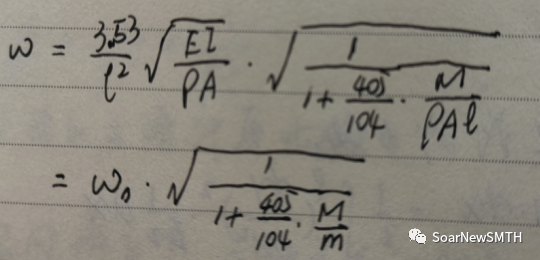 ω = 3.53/l² √(EI/ρA) · √(1/(1 + 405/104 · M/ρAl))
= ω₀ · √(1/(1 + 405/104 · M/m))
SoarNewSMTH